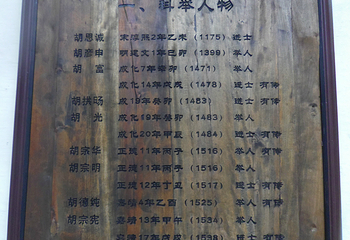 一、科举人物
胡思诚 宋淳熙2年乙未（1175）进士
胡彦申 明建文1年己卯（1399）举人
胡 富 成化7年辛卯（1471） 举人
成化14年戊戌（1478） 进士 有传
胡拱旸 成19年癸卯（1483） 举人
胡 光 成化19年癸卯（1483） 举人
成化20年甲辰（1484） 进士 有传
胡宗华 正德11年丙子（1516） 举人 有传
胡宗明 正德11年丙子（1516） 举人
正德12年丁丑（1517） 进士 有传
胡德纯 嘉靖4年乙酉（1525） 举人 有传
胡宗宪 嘉靖13年甲午（1534） 举人
嘉靖17年戊戌（1538） 进士 有传